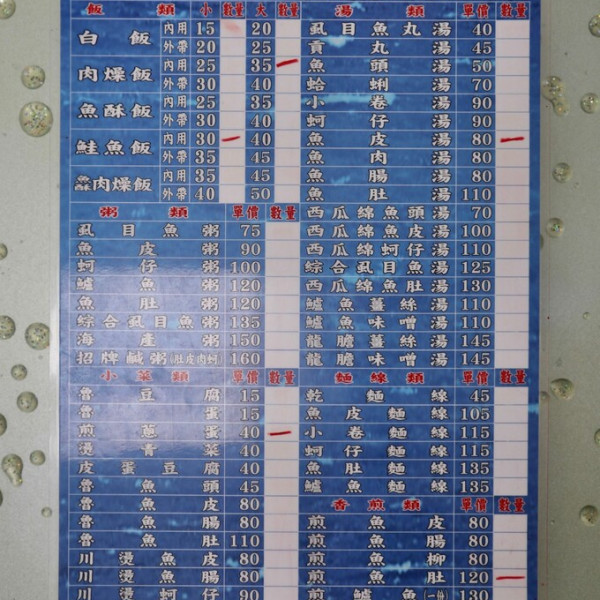 飯類 小 數量 大 數量
白飯 內用 15 20
外帶 20 25
肉燥飯 內用 25 35
外帶 30 40
魚酥飯 內用 25 35
外帶 30 40
鮭魚飯 內用 30 40
外帶 35 45
肉燥飯 內用 35 45
外帶 40 50
粥類 單價 數量
虱目魚粥 75
魚皮粥 90
蚵仔粥 100
鱸魚粥 120
魚肚粥 120
綜合虱目魚粥 135
海產粥 150
招牌鹹粥(肚皮肉蚵) 160
小菜類 單價 數量
魯豆腐 15
魯蛋 15
煎蔥蛋 40
燙青菜 40
皮蛋豆腐 40
魯魚頭 45
魯魚皮 80
魯魚腸 80
魯魚肚 110
川燙魚皮 80
川燙魚腸 80
川燙蚵仔 90
湯類 單價 數量
虱目魚丸湯 40
貢丸湯 45
魚頭湯 50
蛤蜊湯 70
小卷湯 90
蚵仔湯 90
魚皮湯 80
魚肉湯 80
魚腸湯 80
魚肚湯 110
西瓜綿魚頭湯 70
西瓜綿魚皮湯 100
西瓜綿蚵仔湯 110
綜合虱目魚湯 125
西瓜綿魚肚湯 130
鱸魚薑絲湯 110
鱸魚味噌湯 110
龍膽薑絲湯 145
龍膽味噌湯 145
麵線類 單價 數量
乾麵線 45
魚皮麵線 105
小卷麵線 115
蚵仔麵線 115
魚肚麵線 135
鱸魚麵線 135
香煎類 單價 數量
煎魚皮 80
煎魚腸 80
煎魚柳 80
煎魚肚 120
煎鱸魚(一份) 130